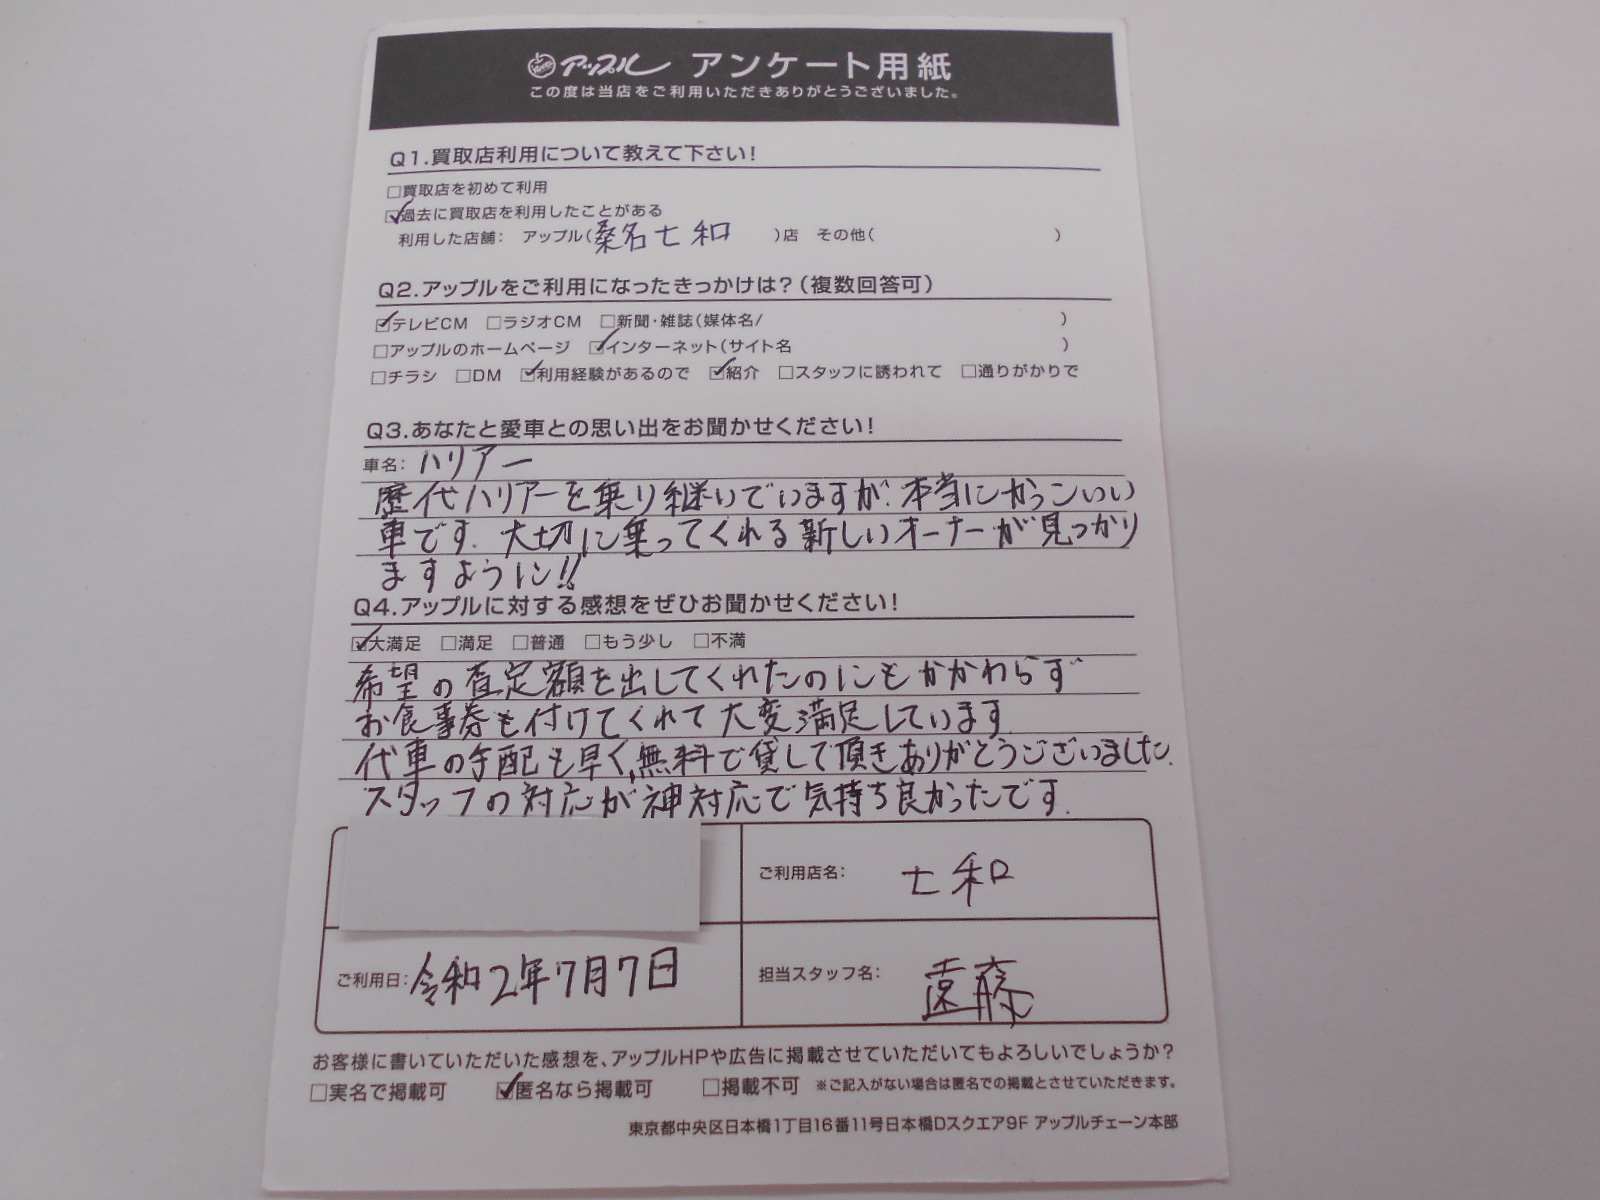 アップル アンケート用紙
この度は当店をご利用いただきありがとうございました。
Q1.買取店利用について教えて下さい!
□買取店を初めて利用
☑過去に買取店を利用したことがある
利用した店舗: アップル(桑名七和 )店 その他( )
Q2.アップルをご利用になったきっかけは?(複数回答可)
☑テレビCM □ラジオCM □新聞・雑誌(媒体名/ )
□アップルのホームページ ☑インターネット(サイト名 )
□チラシ □DM ☑利用経験があるので ☑紹介 □スタッフに誘われて □通りがかりで
Q3.あなたと愛車との思い出をお聞かせください!
車名: ハリアー
歴代ハリアーを乗り継いでいますが、本当にかっこいい
車です。大切に乗ってくれる新しいオーナーが見つかり
ますように!!
Q4.アップルに対する感想をぜひお聞かせください!
☑大満足 □満足 □普通 □もう少し □不満
希望の査定額を出してくれたのにもかかわらず
お食事券も付けてくれて大変満足しています
代車の手配も早く、無料で貸して頂きありがとうございました。
スタッフの対応が神対応で気持ち良かったです。
ご利用店名: 七和
ご利用日: 令和2年7月7日
担当スタッフ名: 遠藤
お客様に書いていただいた感想を、アップルHPや広告に掲載させていただいてもよろしいでしょうか?
□実名で掲載可 ☑匿名なら掲載可 □掲載不可 ※ご記入がない場合は匿名での掲載とさせていただきます。
東京都中央区日本橋1丁目16番11号日本橋Dスクエア9F アップルチェーン本部